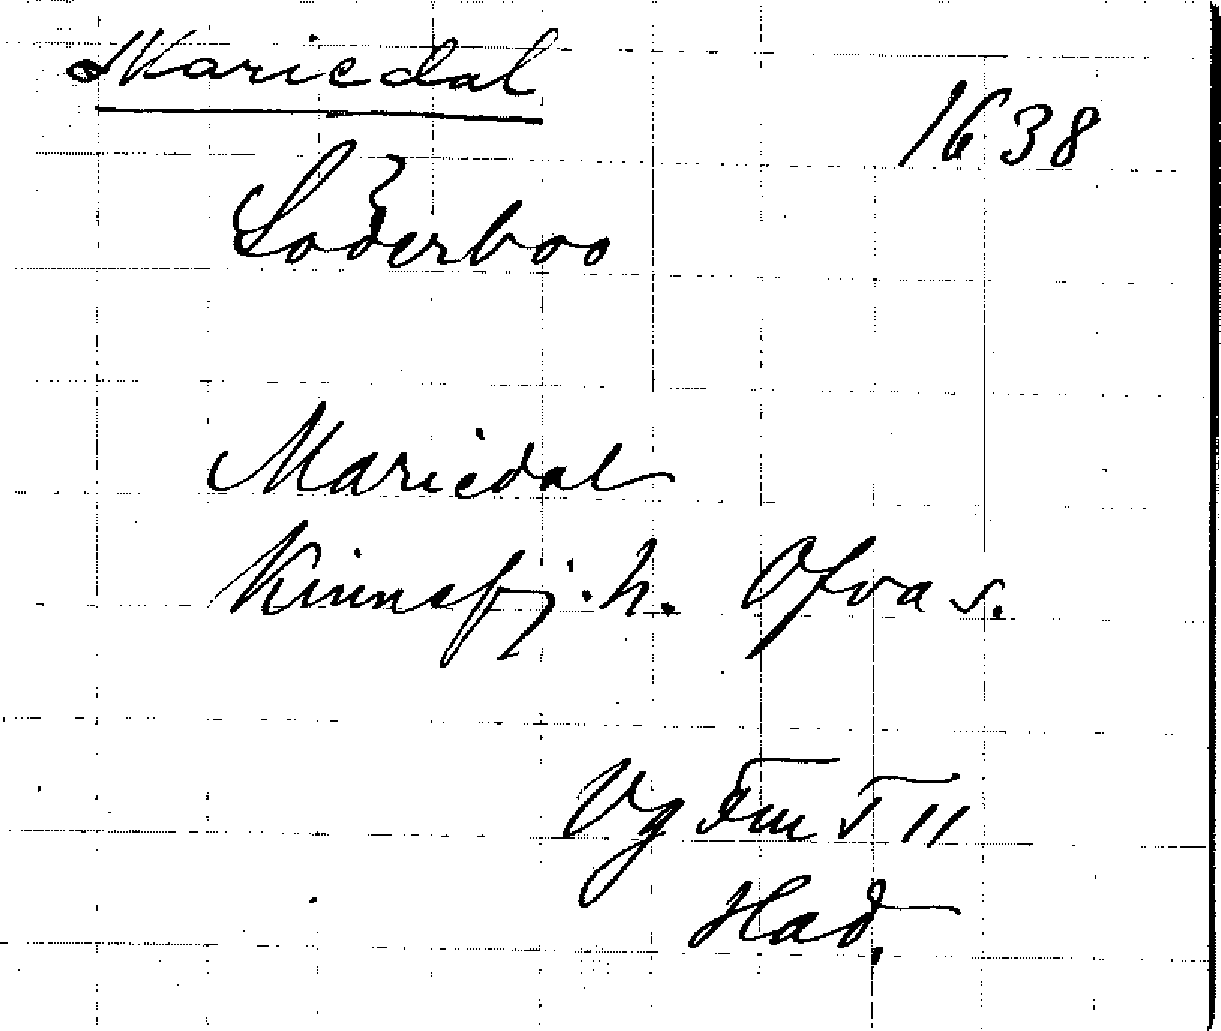 Mariedal
1638
Söderboo
Mariedal
Kinnefj. h. Ofva s.
Vg Fm T 11
Had.